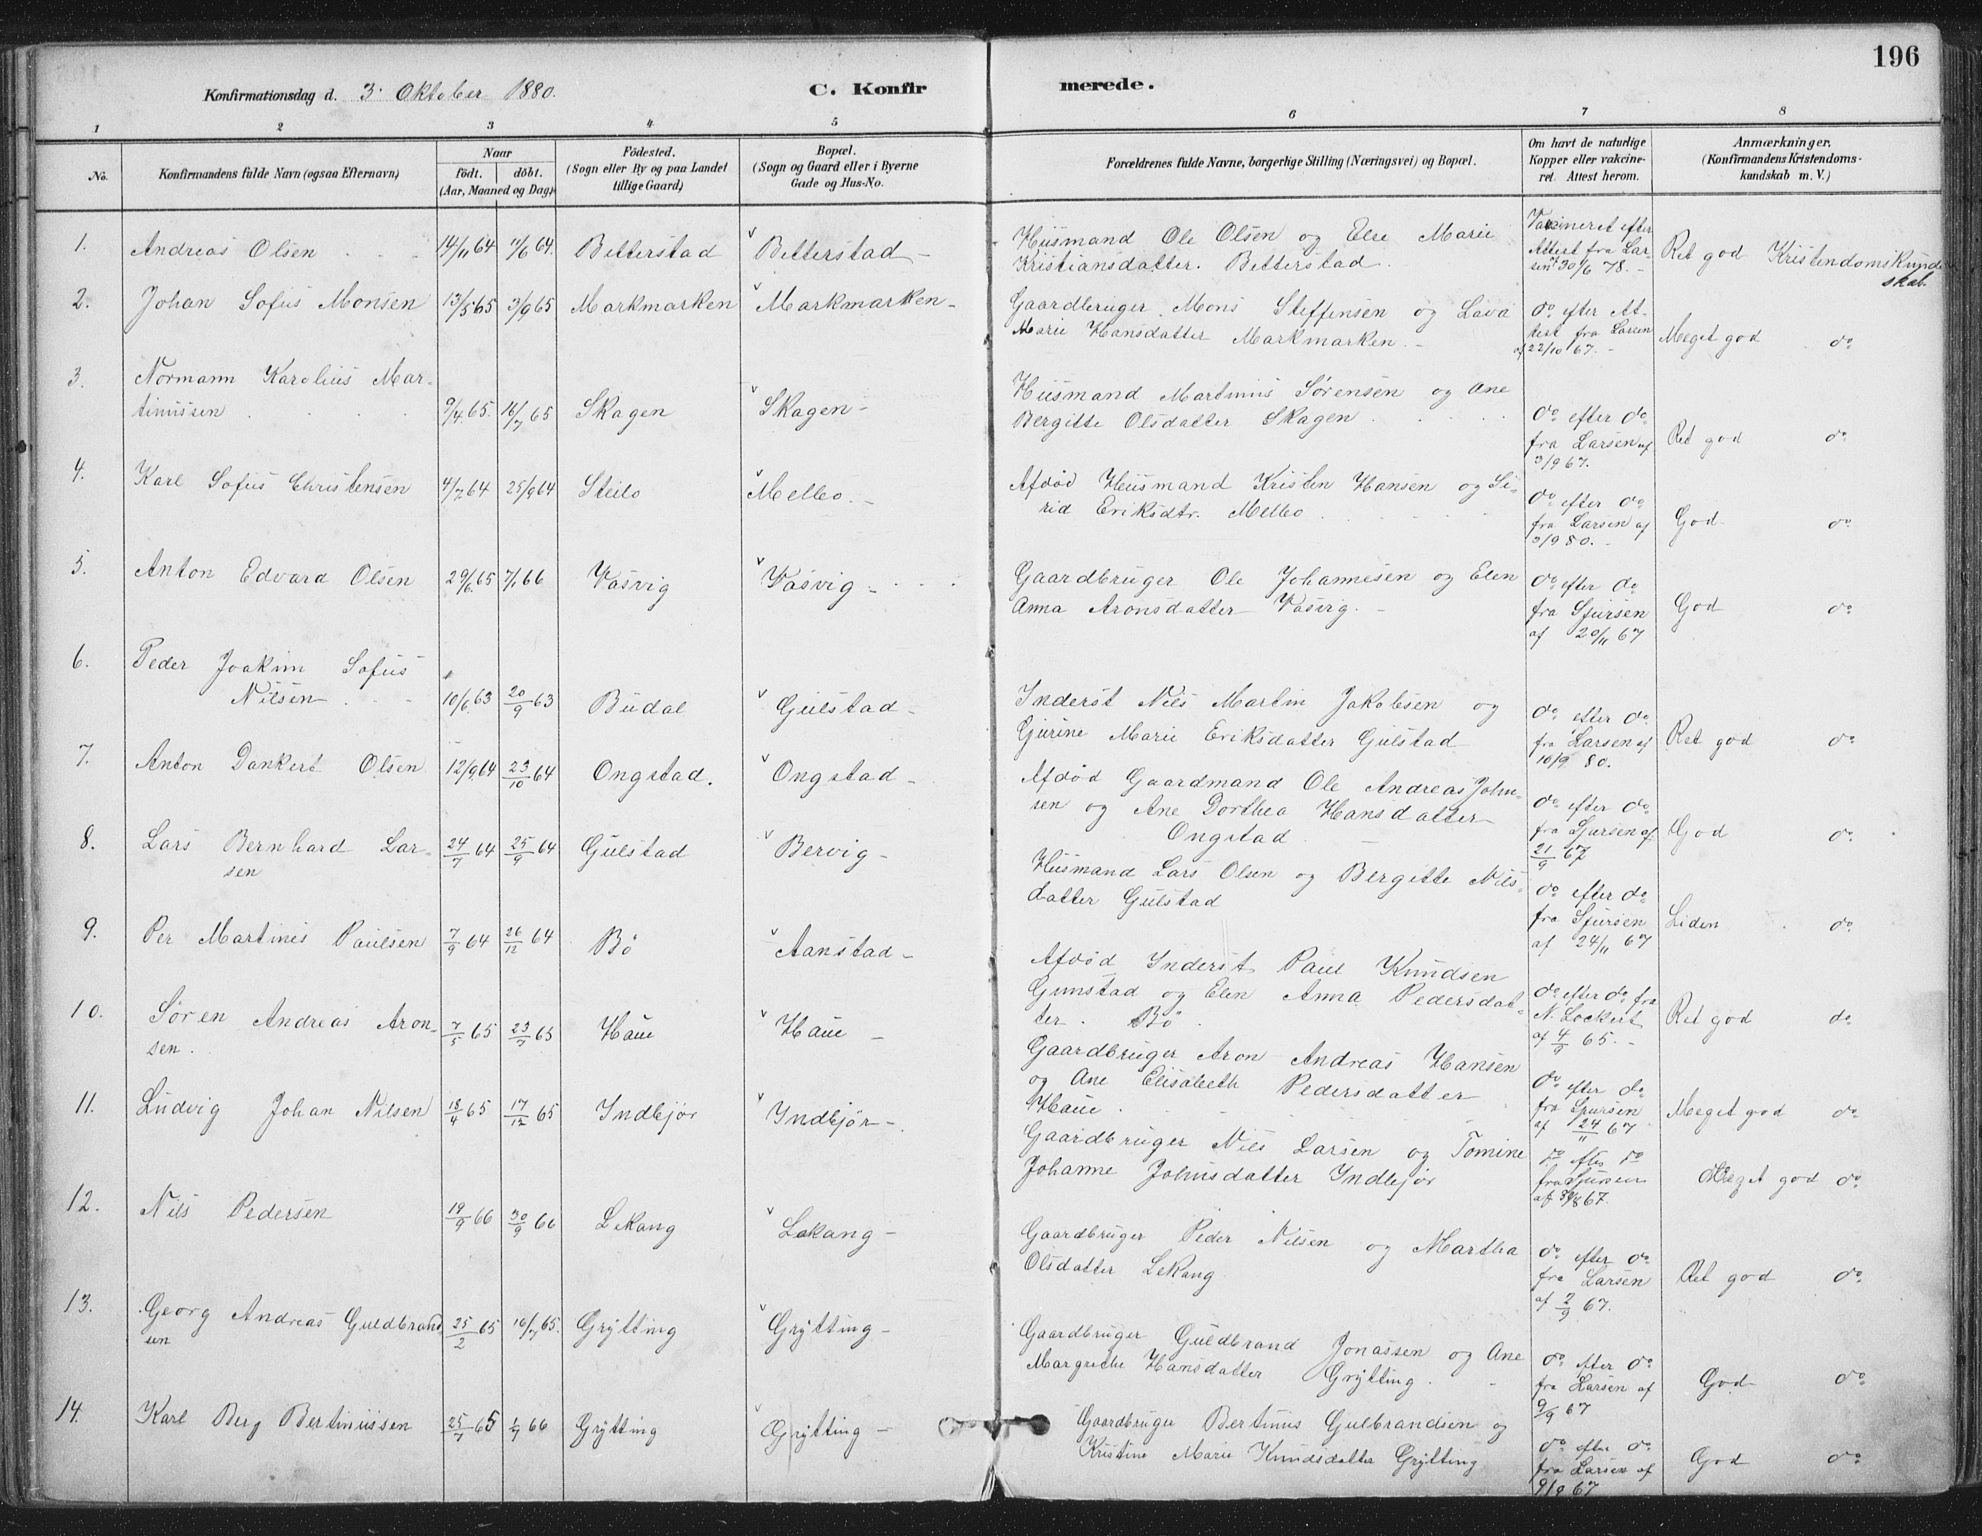 196
Konfirmationsdag d. 3. Oktober 1880. C. Konfirmerede.
1 2 3 4 5 6 7 8
No. Konfirmandens fulde Navn (ogsaa Efternavn) Naar født. døbt. (Aar, Maaned og Dag) Fødested. (Sogn eller By og paa Landet tillige Gaard) Bopæl. (Sogn og Gaard eller i Byerne Gade og Hus-No. Forældrenes fulde Navne, borgerlige Stilling (Næringsvei) og Bopæl. Om havt de naturlige Kopper eller vakcineret. Attest herom. Anmærkninger, (Konfirmandens Kristendomskundskab m. V.)
1. Andreas Olsen 14/11 64 64. Bitterstad Bitterstad Husmand Ole Olsen og Else Marie
Kristiansdatter. Bitterstad. Vaccineret efter Attest fra Larsen 30/6 78. Ret god Kristendomskundskab.
2. Johan Sofus Monsen 13/5 65 3/9 65 Markmarken Markmarken Gaardbruger Mons Steffensen og Lava
Marie Hansdatter Markmarken. do efter Attest fra Larsen af 22/10 67. Meget god do
3. Normann Karolius Martinussen 9/4 65. 16/7 65 Skagen Skagen Husmand Martinus Sørensen og Ane
Bergitte Olsdatter Skagen do efter do fra Larsen af 3/9 67. Ret god do
4. Karl Sofus Christensen 4/7 64 25/9 64 Steilo Melbo. Afdød Husmand Kristen Hansen og Sirid Eriksdtr. Melbo do efter do fra Larsen af 3/9 80. God do
5. Anton Edvard Olsen 29/6 65 7/1 66 Vasvig Vasvig Gaardbruger Ole Johannesen og Elen
Anna Aronsdatter Vasvig. do efter do fra Sjursen af 20/11 67 God do
6. Peder Joakim Sofus
Nilsen 10/6 63 20/9 63 Budal Gulstad Inderst Nils Martin Jakobsen og
Gjurine Marie Eriksdatter Gulstad do efter do fra Larsen af 10/9 80. Ret god do
7. Anton Dankert Olsen 12/9 64 23/10 64 Ongstad. Ongstad Afdød Gaardmand Ole Andreas Johnsen og Ane Dorthea Hansdatter
Ongstad do efter do fra Sjursen af 21/9 67 God do
8. Lars Bernhard Larsen 24/7 64 25/9 64 Gulstad Bervig Husmand Lars Olsen og Bergitte Nilsdatter Gulstad do efter do fra Sjursen af 24/11 67 Liden do
9. Per Martinis Paulsen 7/9 64 26/12 64 Bø Aanstad Afdød Inderst Paul Knudsen
Gunstad og Elen Anna Pedersdatter. Bø. do efter do fra N. Lockert af 4/9 65. Ret god do
10. Søren Andreas Aronsen. 7/5 65 23/7 65 Haue Haue Gaardbruger Aron Andreas Hansen
og Ane Elisabeth Pedersdatter
Haue. do efter do fra Sjursen af 24/11 67 Meget god do
11. Ludvig Johan Nilsen 18/4 65 17/12 65 Indbjør Indbjør Gaardbruger Nils Larsen og Tomine
Johanne Johnsdatter Indbjør do efter do fra Sjursen af 67. Meget god do
12. Nils Pedersen 19/9 66 30/9 66 Lekang Lekang Gaardbruger Peder Nilsen og Martha
Olsdatter Lekang do efter do fra Larsen af 2/9 67. Ret god do
13. Georg Andreas Guldbrandsen 25/2 65 16/7 65. Grytting Grytting Gaardbruger Guldbrand Jonassen og Ane
Margrethe Hansdatter Grytting. do efter do fra Larsen af 9/9 67 God do
14. Karl Berg Bertinussen 25/7 65 1/1 66 Grytting Grytting Gaardbruger Bertinus Gulbrandsen og
Kristine Marie Knudsdatter Grytting do efter do fra Larsen af 9/9 67 God do